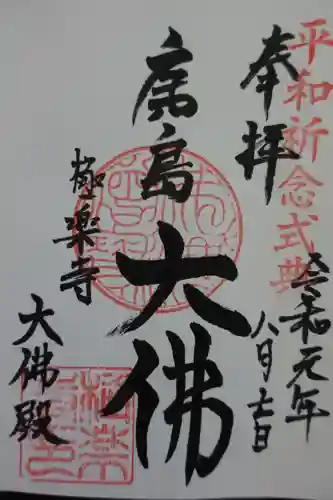 平和祈念式典
令和元年
八月六日
奉拝
廣島大佛
極楽寺
大佛殿